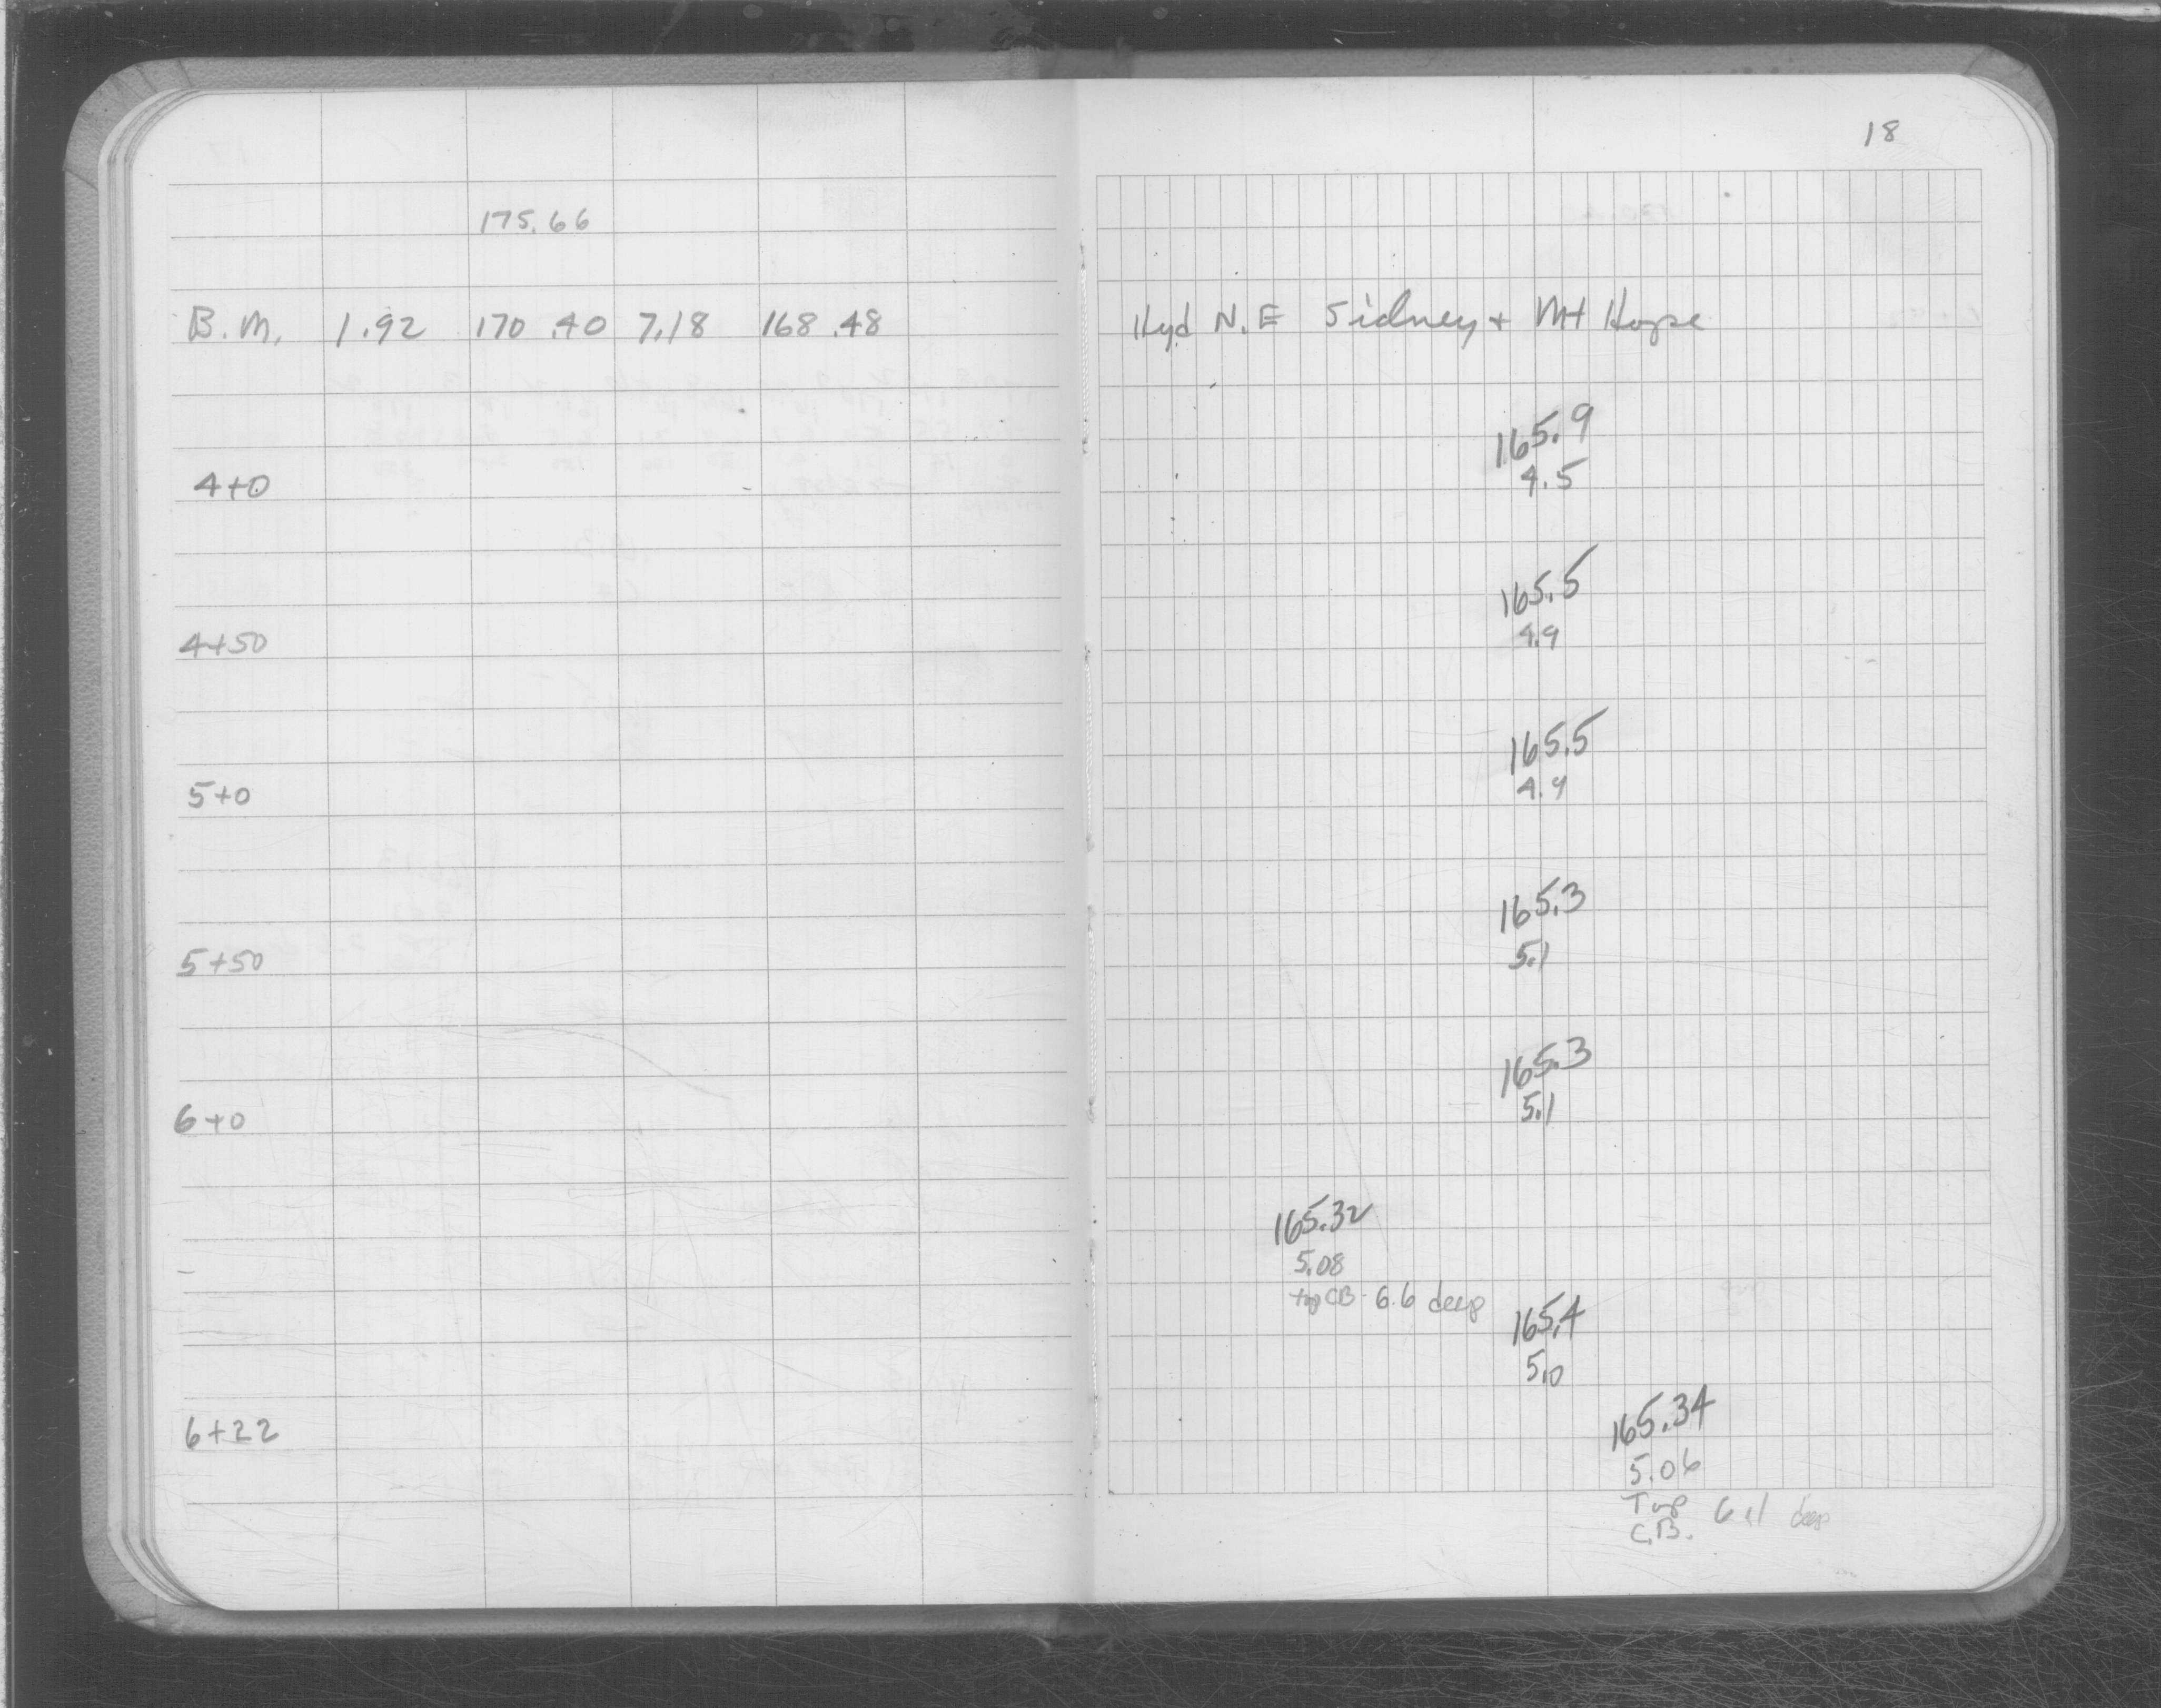 18
175.66
B.M. 1.92 170.40 7.18 168.48 Hyd N.E Sidney + Mt Hope
165.9
4+0 4.5
165.5
4+50 4.9
165.5
5+0 4.9
165.3
5+50 5.1
165.3
6+0 5.1
165.32
5.08
top CB - 6.6 deep
165.4
5.0
165.34
6+22
5.06
Top 6.1 deep
C.B.